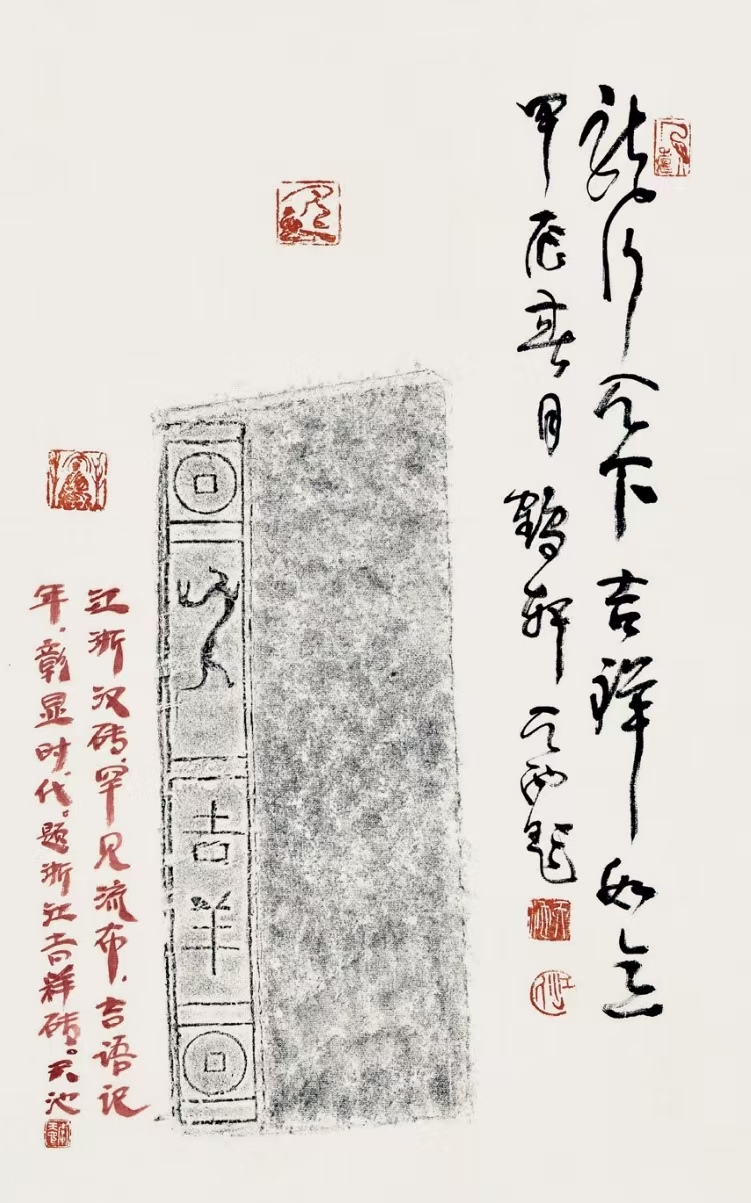 龍行天下吉祥如意
甲辰春月鶴軒天池題
吉羊
江浙汉砖,罕见流布,吉语记
年,彰显时代。题浙江吉祥砖。天池